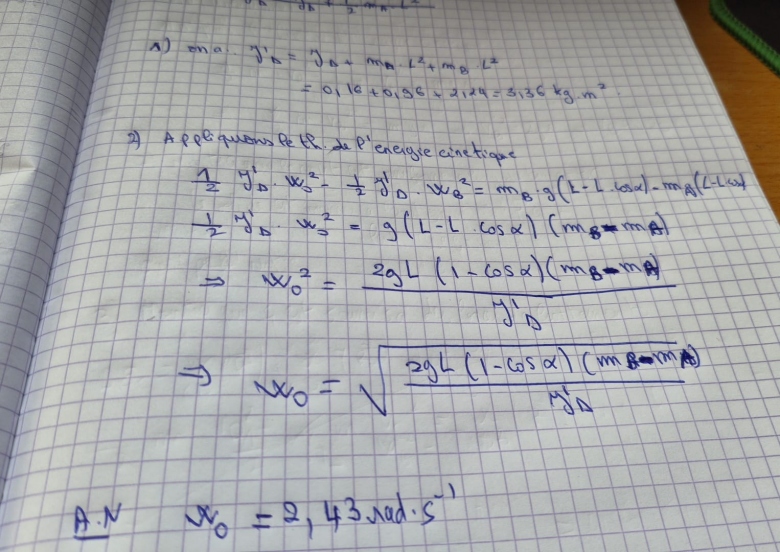 1) on a.. J'Δ = JΔ + mA · L² + mB · L²
= 0,16 + 0,96 + 2,24 = 3,36 kg.m²
2) Appliquons le th. de l'energie cinetique
1/2 J'Δ · ω0² - 1/2 J'Δ · ωB² = mB · g(L - L · cosα) - mA (L - L cos
1/2 J'Δ · ω0² = g(L - L · cosα) (mB - mA)
⇒ ω0² = 2gL (1 - cosα)(mB - mA) / J'Δ
⇒ ω0 = √(2gL (1 - cosα) (mB - mA) / J'Δ)
A.N ω0 = 2,43 rad·s⁻¹